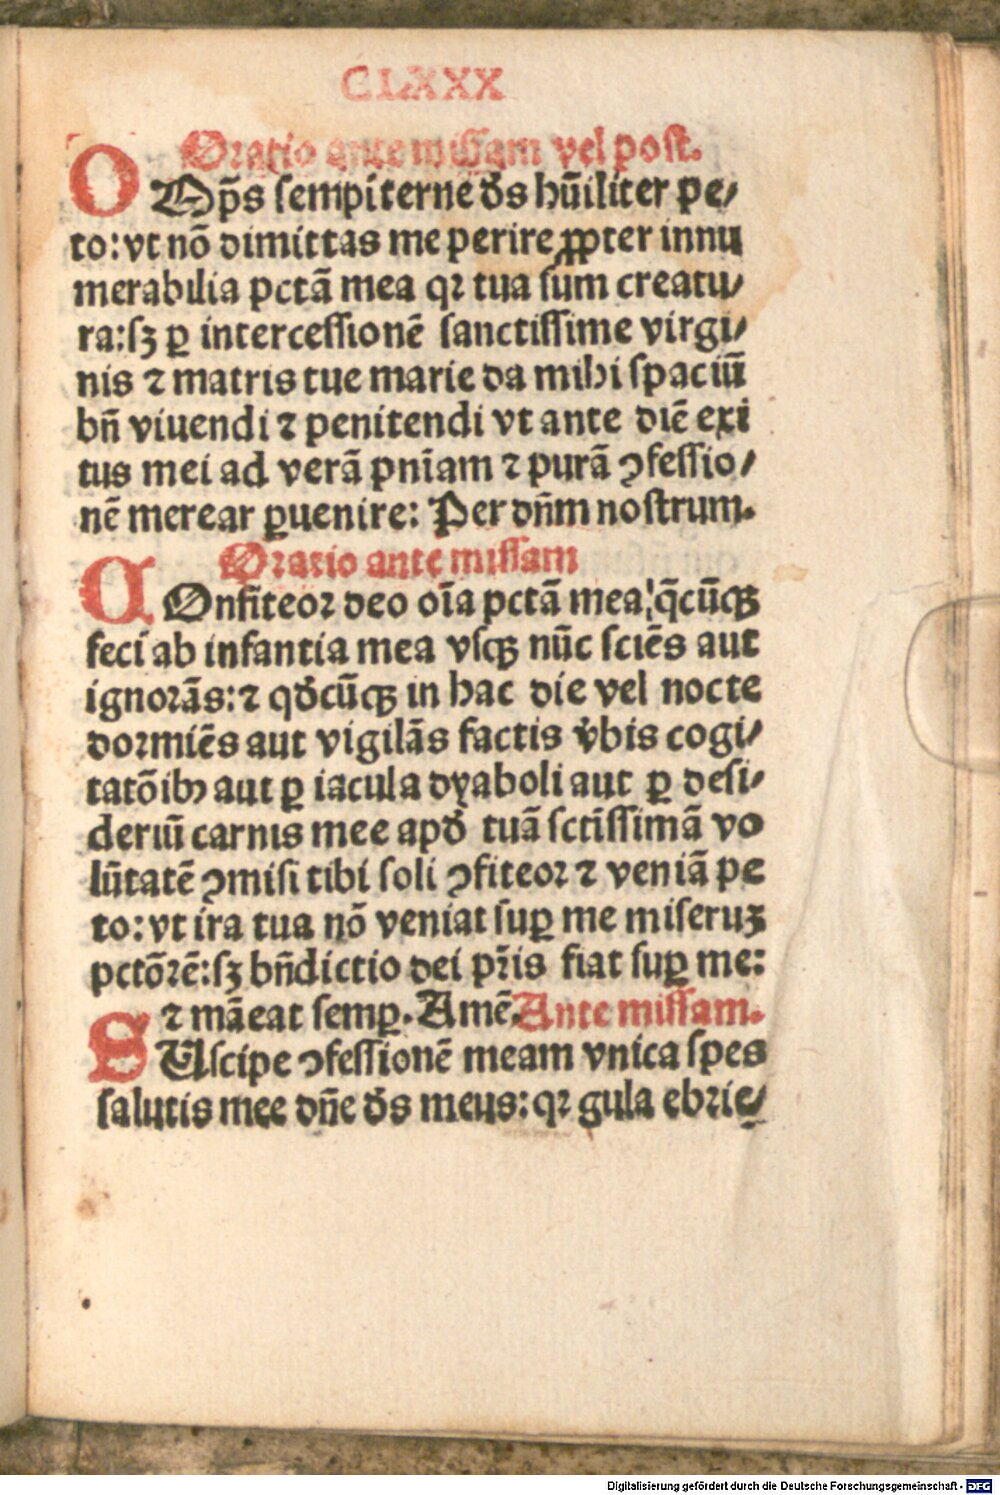 CLXXX
Oratio ante missam vel post.
OMp̄s sempiterne d̄s hūiliter pe⸗
to: vt nō dimittas me perire ꝓpter innu
merabilia pctā mea qꝛ tua sum creatu⸗
ra: sꝫ ꝑ intercessionē sanctissime virgi⸗
nis ⁊ matris tue marie da mihi spaciū
bn̄ viuendi ⁊ penitendi vt ante diē exi
tus mei ad verā pn̄iam ⁊ purā ꝯfessio⸗
nē merear ꝑuenire: Per dn̄m nostrum.
Oratio ante missam
COnfiteoꝛ deo oīa pctā mea: q̄cūqꝫ
feci ab infantia mea vsqꝫ nūc sciēs aut
ignoꝛās: ⁊ qd̄cūqꝫ in hac die vel nocte
doꝛmiēs aut vigilās factis v̄bis cogi⸗
tatōibꝰ aut ꝑ iacula dyaboli aut ꝑ desi⸗
deriū carnis mee apd̄ tuā sctīssimā vo
lūtatē ꝯmisi tibi soli ꝯfiteoꝛ ⁊ veniā pe
to: vt ira tua nō veniat suꝑ me miseruꝫ
pctōꝛē: sꝫ bn̄dictio dei pr̄is fiat suꝑ me:
⁊ māeat semꝑ. Amē. Ante missam.
SUscipe ꝯfessionē meam vnica spes
salutis mee dn̄e d̄s meus: qꝛ gula ebrie⸗
Digitalisierung gefördert durch die Deutsche Forschungsgemeinschaft - DFG